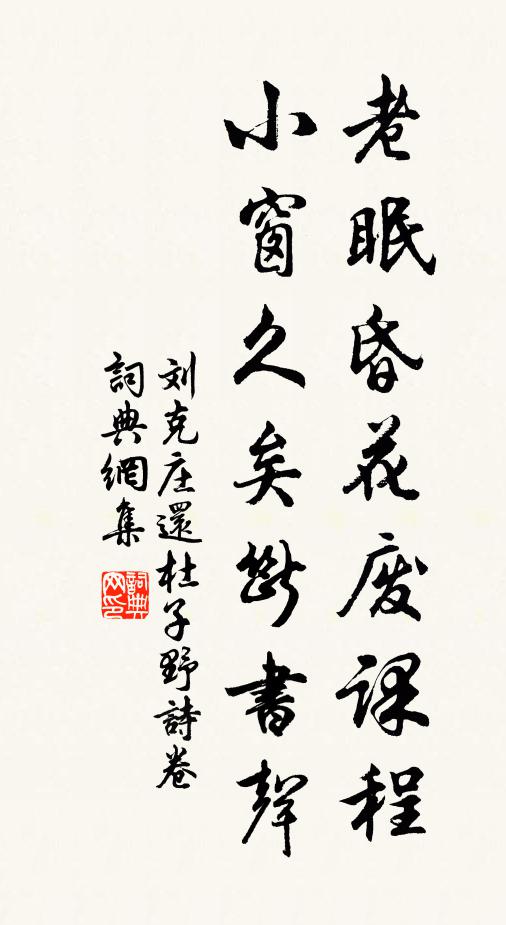 老眠昏花废课程
小窗久矣斷書聲
刘克庄還杜子野詩卷
詞典網集
詞典网印